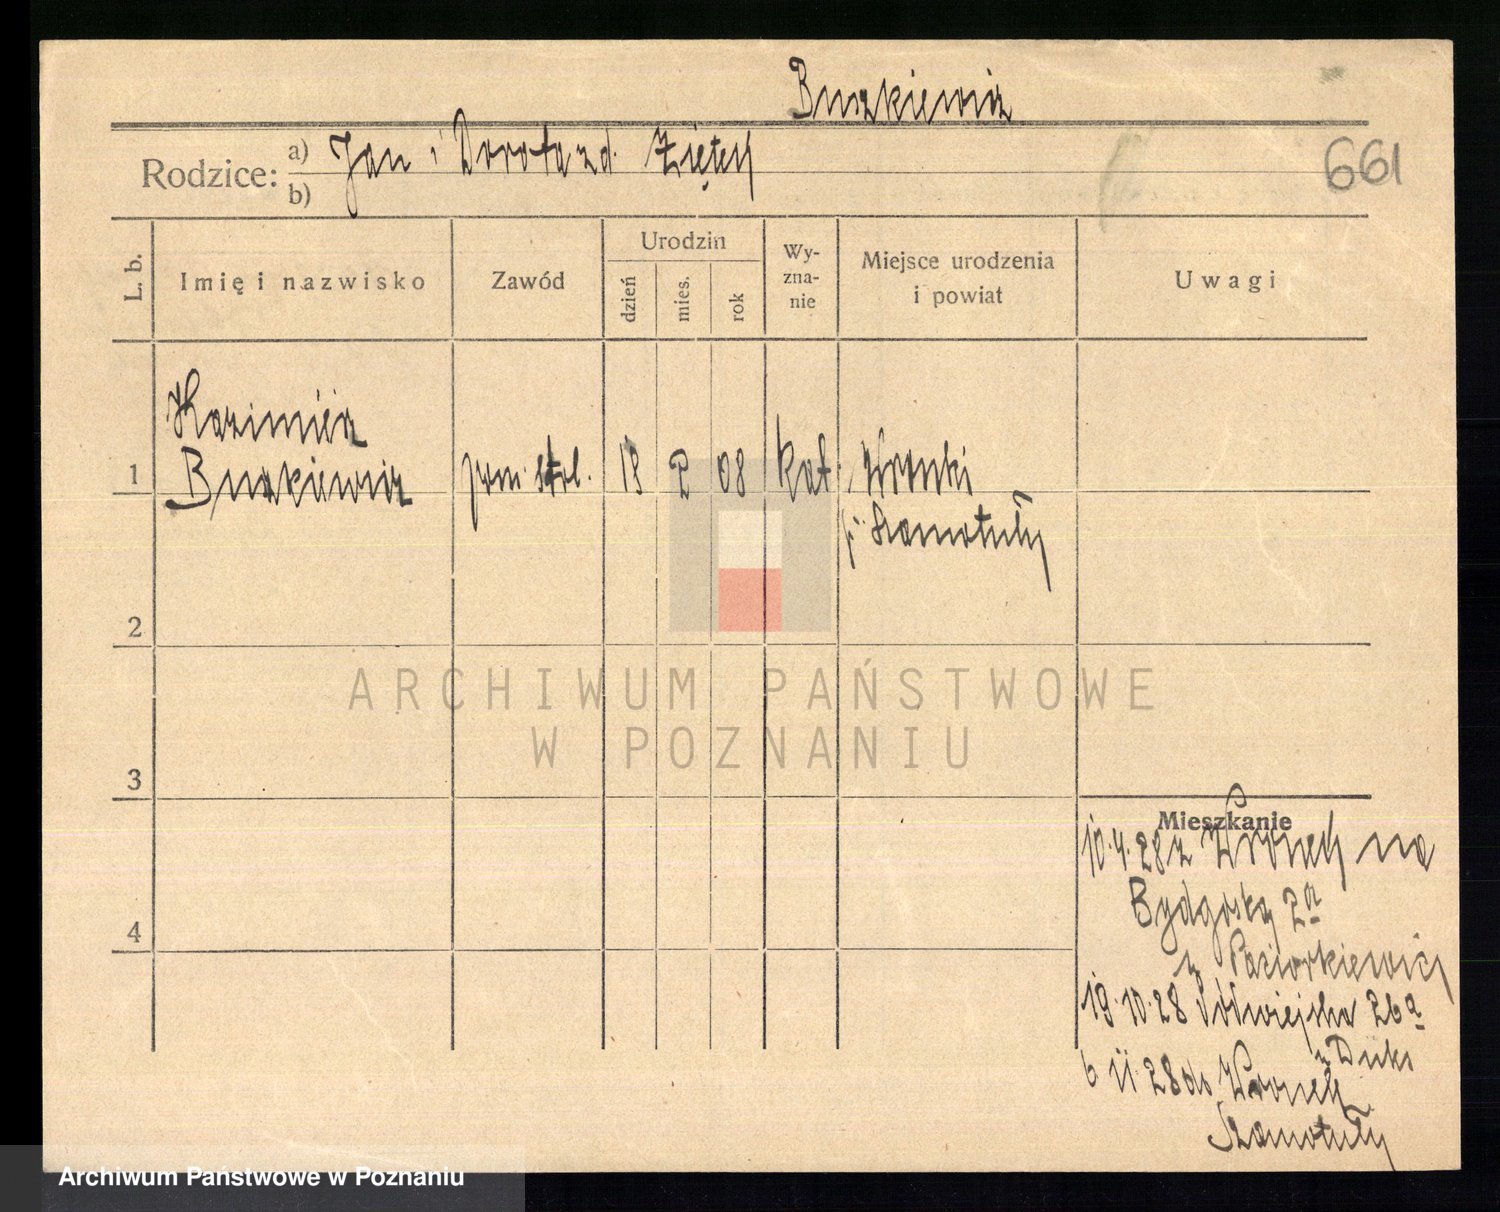 Buszkiewicz
Rodzice: a) Jan i Dorota z d. Ziętek
b)
661
L. b.
Imię i nazwisko
Zawód
Urodzin
dzień
mies.
rok
Wy-
zna-
nie
Miejsce urodzenia
i powiat
Uwagi
Kazimierz
1 Buszkiewicz
pom. stol. 18 2 08 kat. Wronki
p. Szamotuły
2
ARCHIWUM PAŃSTWOWE
W POZNANIU
3
Mieszkanie
10.4.28 z Wronek na
Bydgoską 2a
u Paciorkiewicz
19.10.28 Półwiejska 26a
u
4
6 11 28 do Wronek
Szamotuły
Archiwum Państwowe w Poznaniu